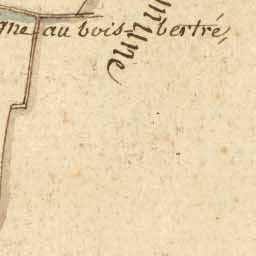 gne au bois bertré,
mune